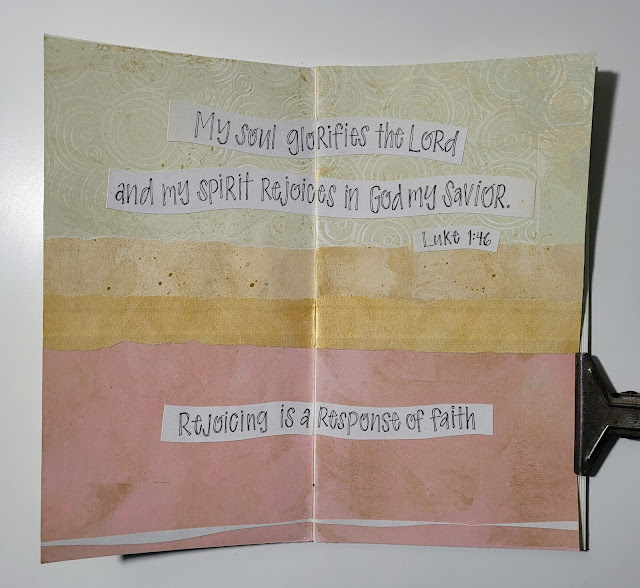 My soul glorifies the Lord
and my spirit rejoices in God my Savior.
Luke 1:46
Rejoicing is a response of faith